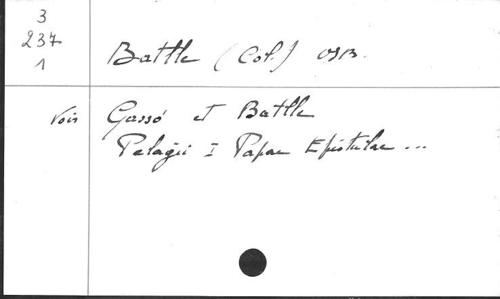 3
237
1
Batlle (Col.) OSB.
Voir Gassó et Batlle
Pelagii I Papae Epistulae ...